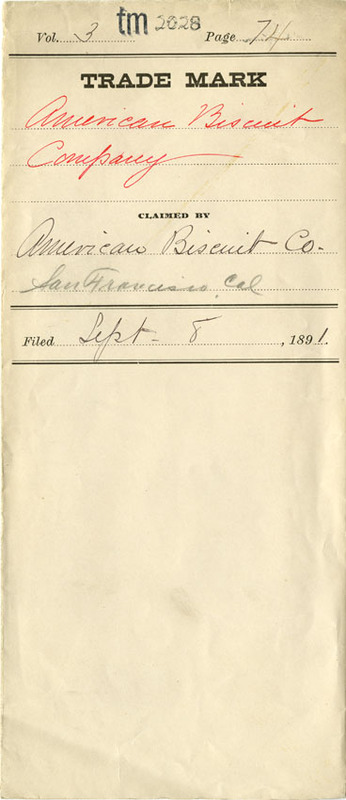 tm 2028
Vol. 3 Page 74
TRADE MARK
American Biscuit
Company
CLAIMED BY
American Biscuit Co.
San Francisco, Cal
Filed Sept - 8, 1891.